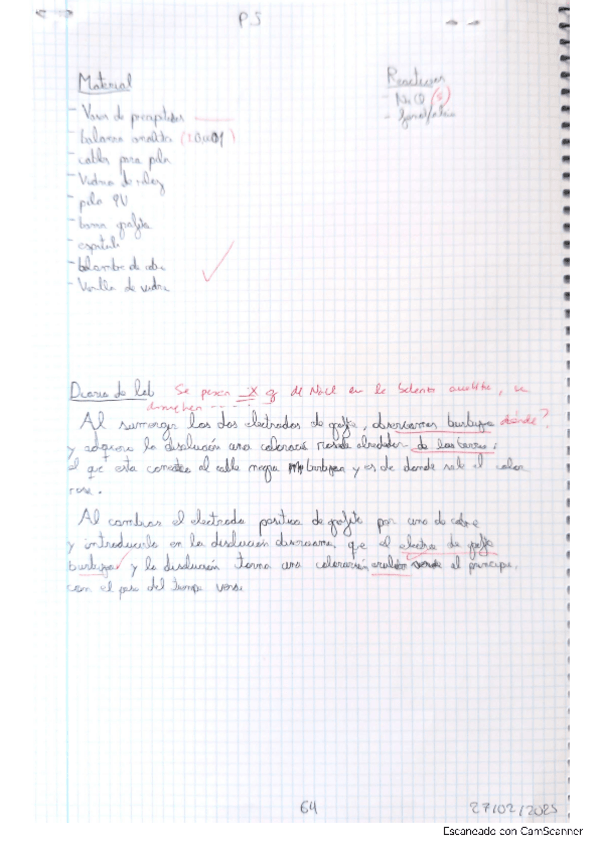 P5
Material
- Vaso de precipitados
- balanza analita (±0,0001)
- cables para pila
- Vidrio de reloj
- pila 9V
- barra grafito
- espátula
- alambre de cobre
- Varilla de vidrio
Reactivos
- NaCl (s)
- fenolftaleína
Diario de lab Se pesan x g de NaCl en la balanza analítica, se
disuelven - - - -
Al sumergir los dos electrodos de grafito, observamos burbujas dónde?
y adquiere la disolución una coloración rosada alrededor de las barras:
el que esta conectado al cable negro burbujea y es de donde sale el color
rosa.
Al cambiar el electrodo positivo de grafito por uno de cobre
y introducirlo en la disolución observamos que el electrodo de grafito
burbujea y la disolución toma una coloración verde al principio,
con el paso del tiempo verde
64
27/02/2025
Escaneado con CamScanner